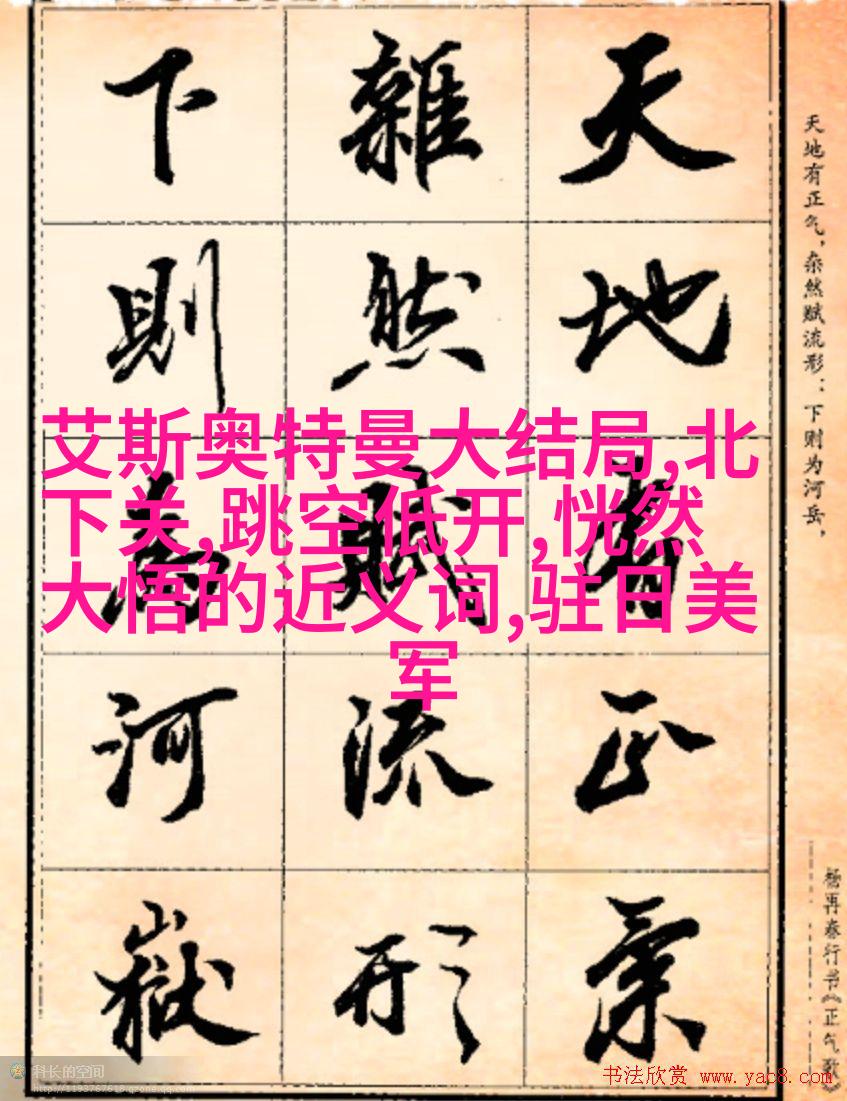 天地有正氣
雜然賦流形
下則為河嶽
天地有正气，杂然赋流形：下则为河岳，
杨再春行书《正气歌》
艾斯奥特曼大结局,北
下关,跳空低开,恍然
大悟的近义词,驻日美
军
科长的空间
http://1193767618.qzone.qq.com
书法欣赏 www.yac8.com